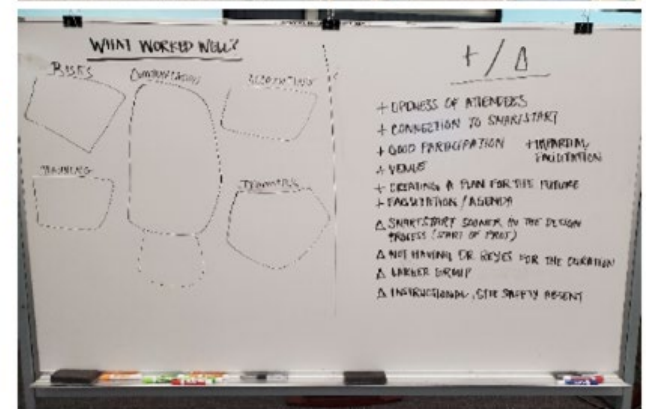 WHAT WORKED WELL?
BUSES
COMMUNICATION
TRAINING
+/Δ
+ OPENESS OF ATTENDEES
+ CONNECTION TO SMARTSTART
+ GOOD PARTICIPATION
+ IMPARTIAL
FACILITATION
+ VENUE
+ CREATING A PLAN FOR THE FUTURE
+ FACILITATION / AGENDA
Δ SMARTSTART SOONER IN THE DESIGN
PROCESS (START OF PROJ)
Δ NOT HAVING DR REYES FOR THE DURATION
Δ LARGER GROUP
Δ INSTRUCTIONAL, SITE SAFETY ABSENT